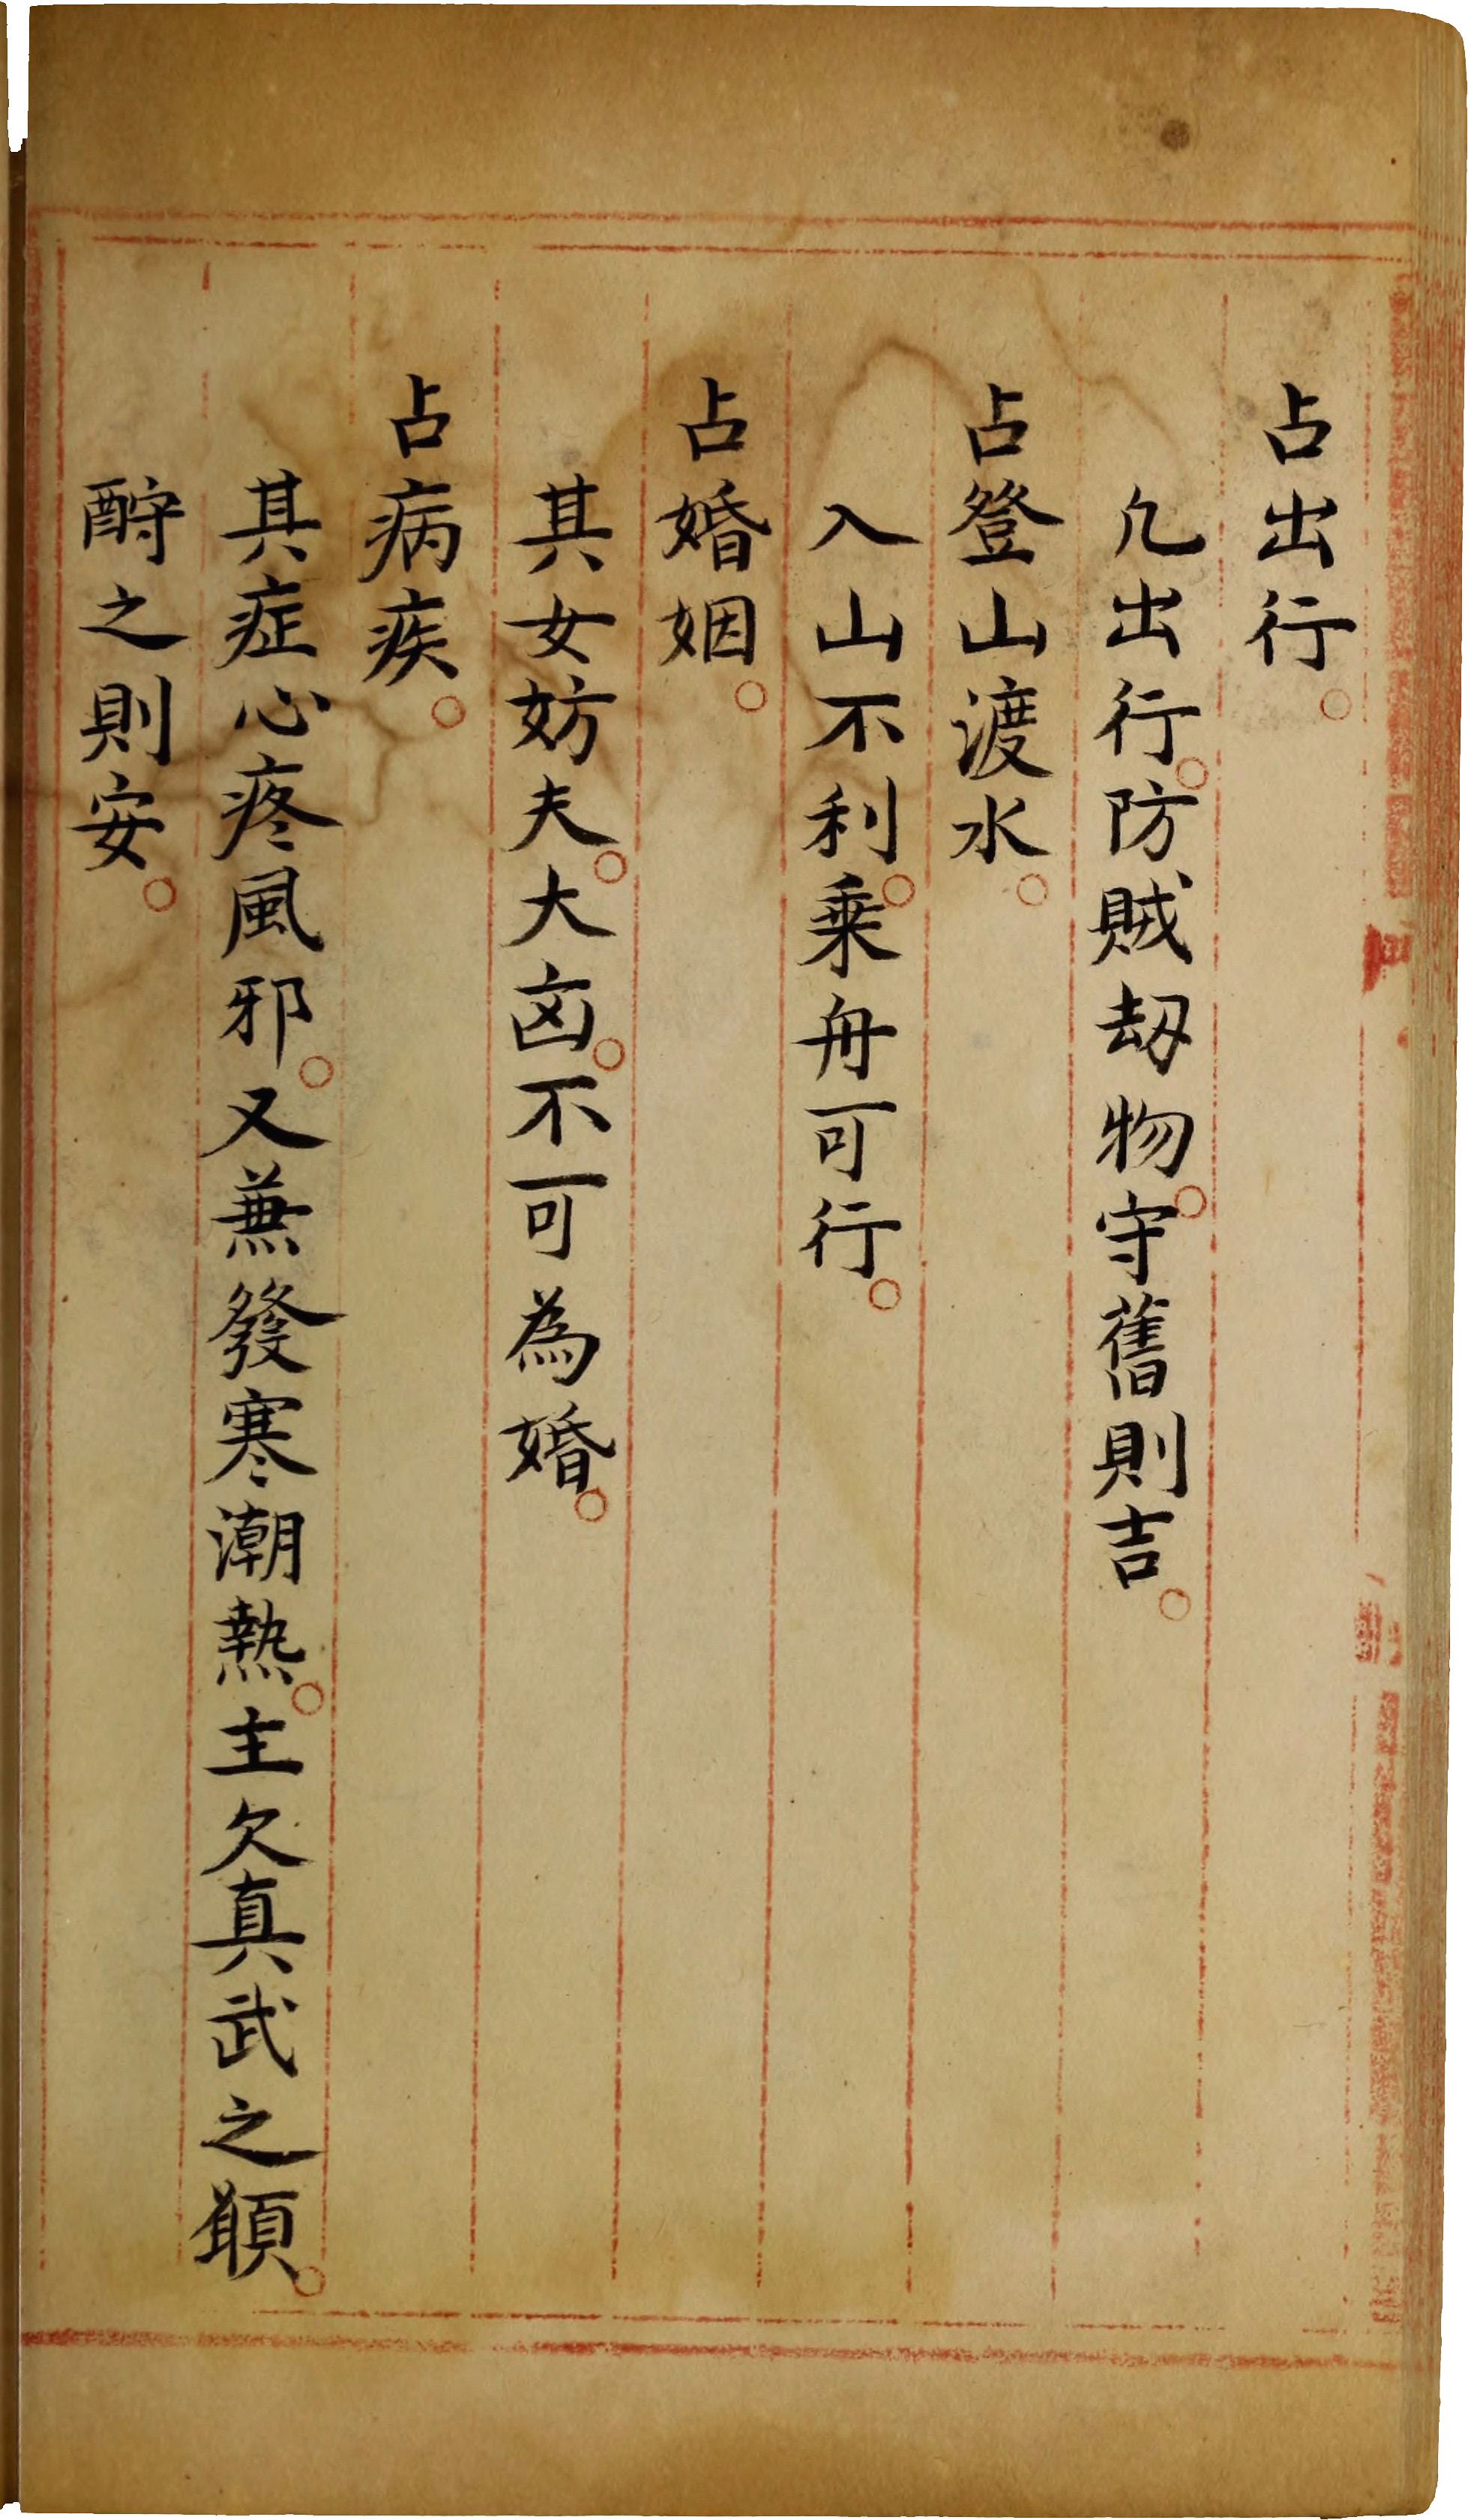 占出行。
凢出行。防賊刼物。守舊則吉。
占登山渡水。
入山不利。乗舟可行。
占婚姻。
其女妨夫。大凶。不可為婚。
占病疾。
其症心疼風邪。又兼發寒潮熱。主欠真武之願。
酧之則安。